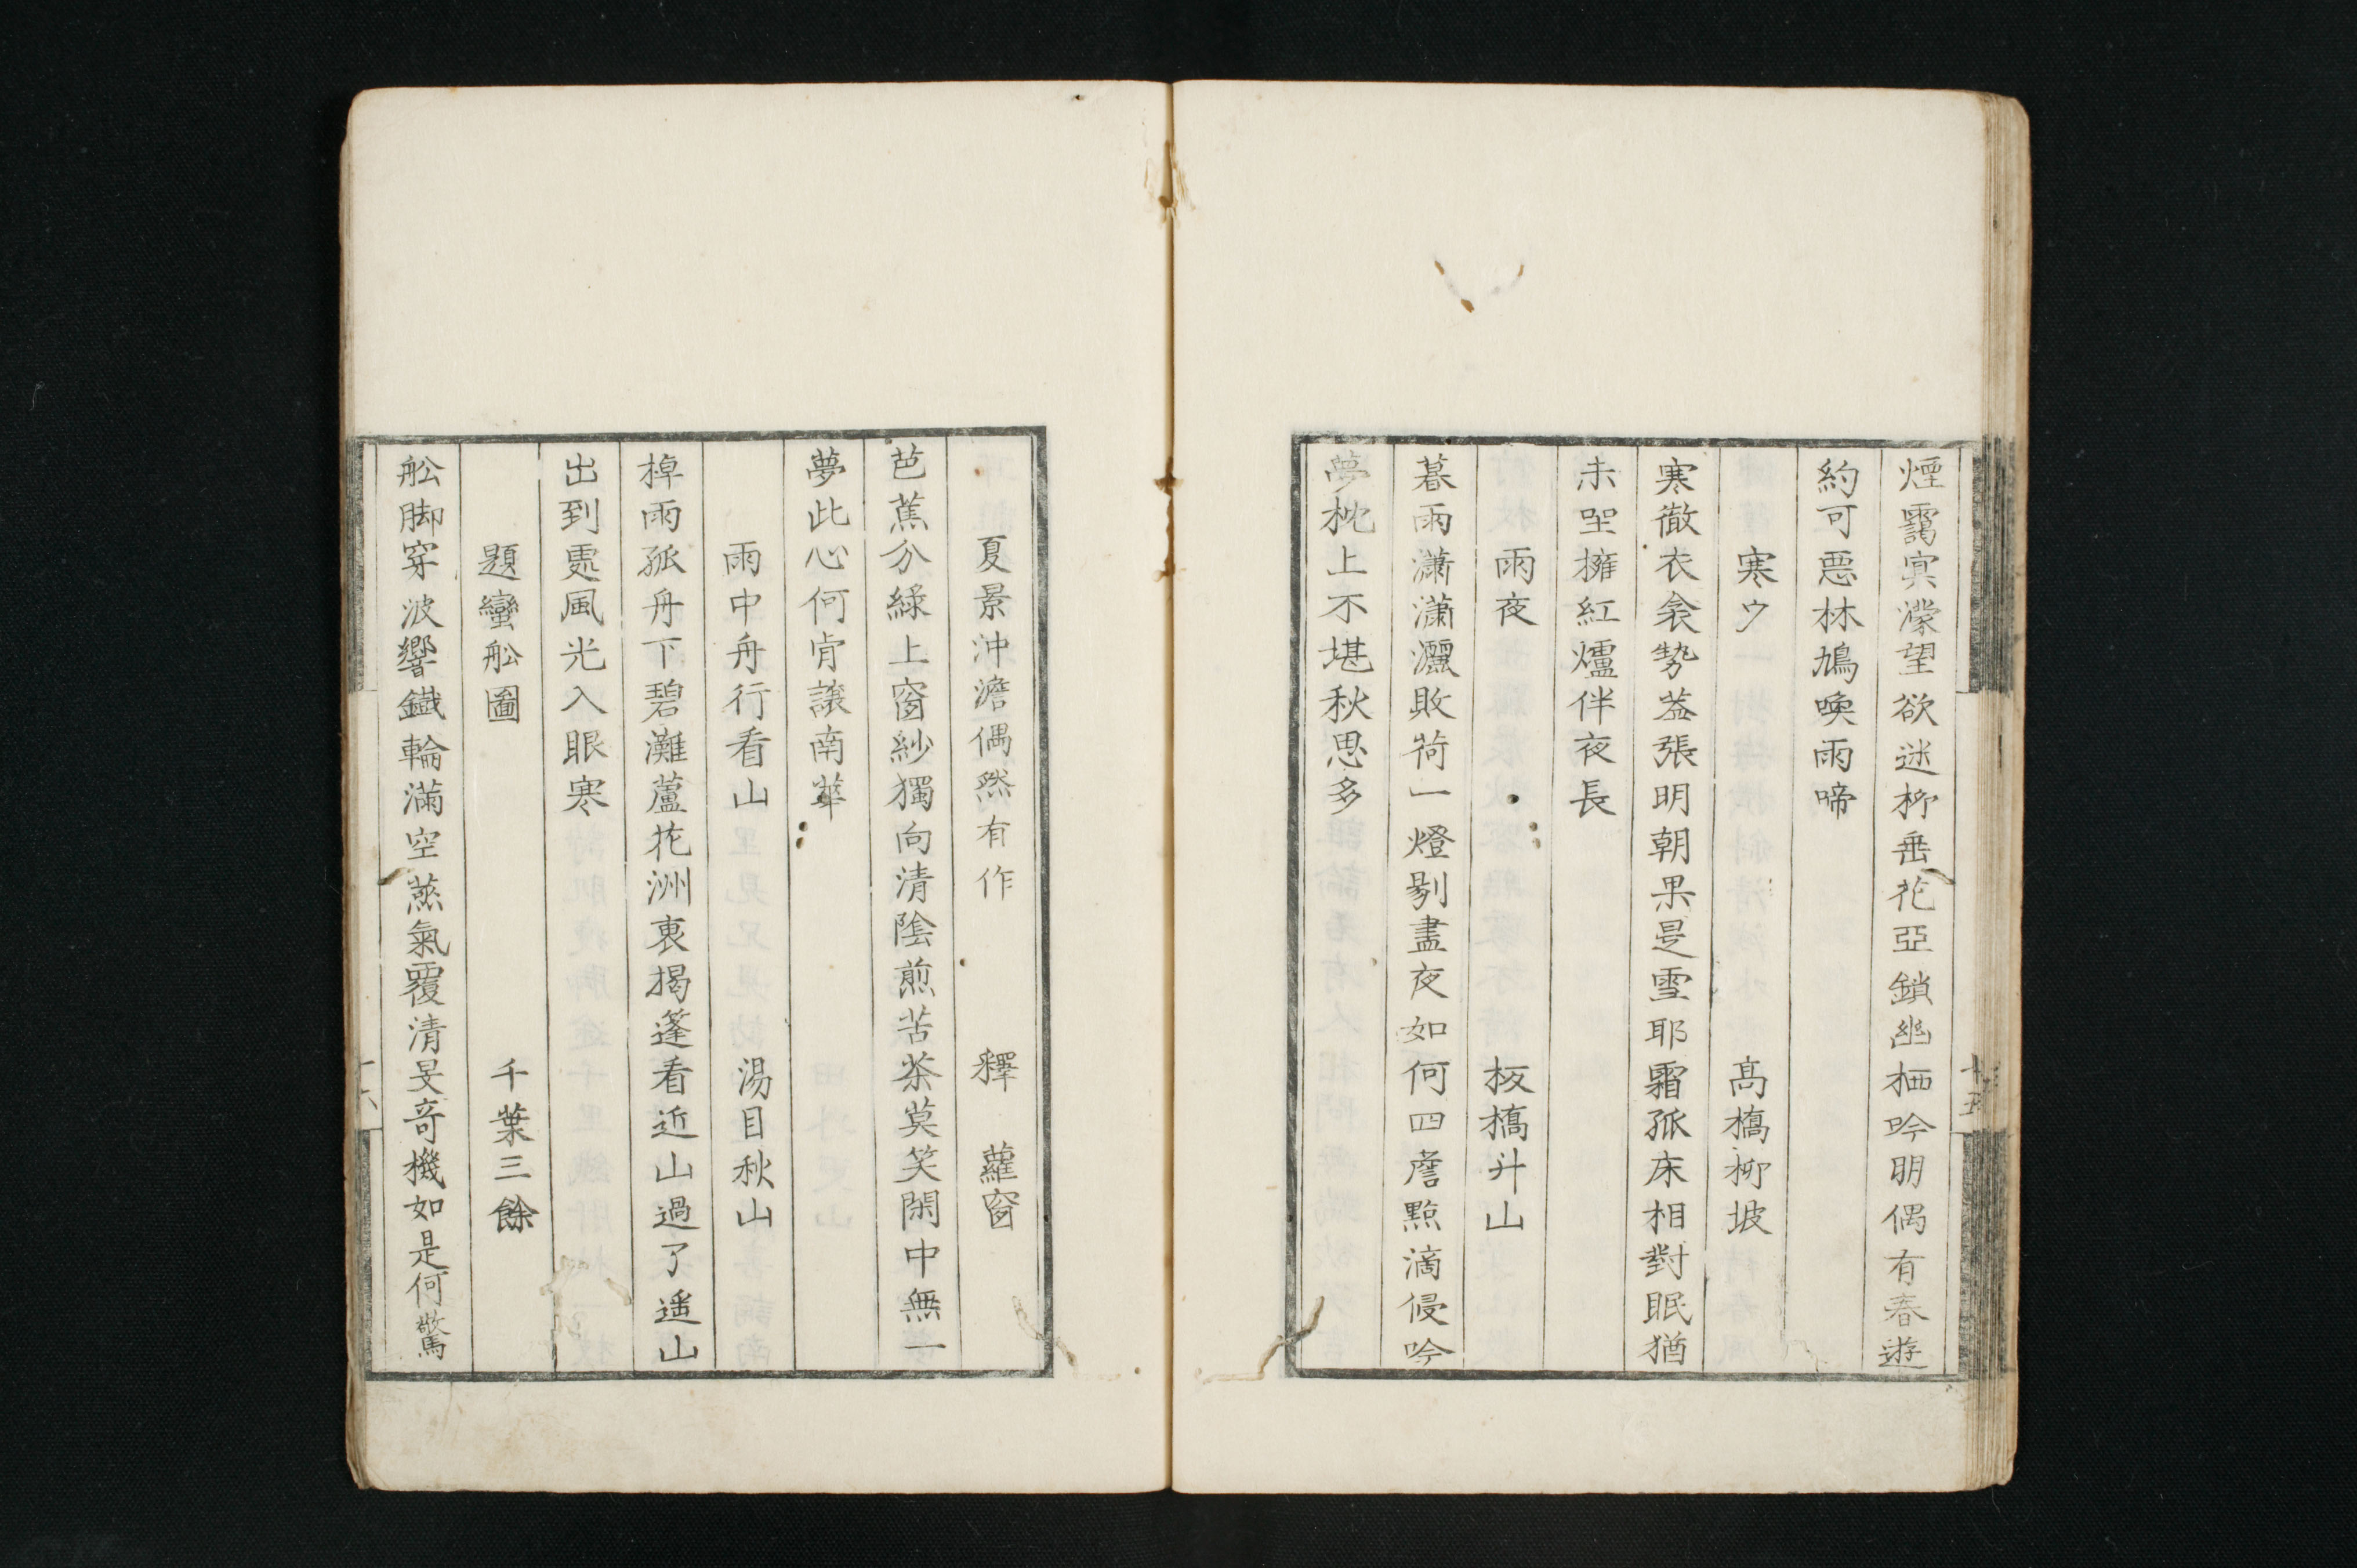 煙靄冥濛望欲迷栁垂花亞鎖幽栖吟明偶有春遊
約可惡林鳩喚雨啼
寒夕
髙橋栁坡
寒徹衣衾勢益張明朝果是雪耶霜孤床相對眠猶
未坐擁紅爐伴夜長
雨夜
板橋升山
暮雨瀟瀟灑敗荷一燈剔盡夜如何四簷點滴侵吟
夢枕上不堪秋思多
十五
夏景沖澹偶然有作
釋蘿窗
芭蕉分緑上窗紗獨向清陰煎苦茶莫笑閑中無一
夢此心何肯讓南華
雨中舟行看山
湯目秋山
棹雨孤舟下碧灘蘆花洲裏揭篷看近山過了遥山
出到處風光入眼寒
題蠻舩圖
千葉三餘
舩脚穿波響鐵輪滿空蒸氣覆清旻奇機如是何驚
十六